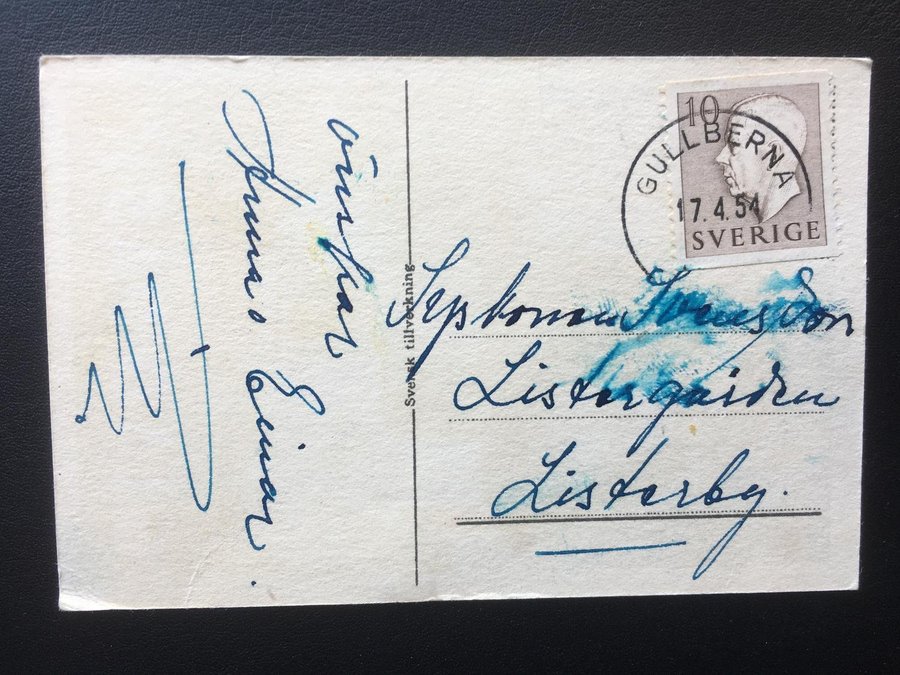 önskar
Anna o Einar.
Svensk tillverkning
10
SVERIGE
GULLBERNA
17.4.54
Svensson
Listergården
Listerby.